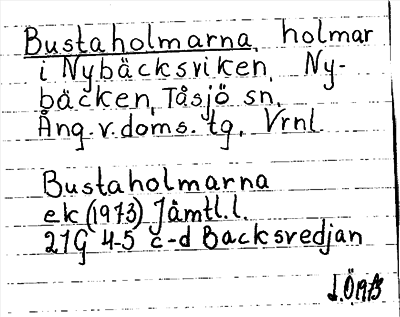 Bustaholmarna, holmar
i Nybäcksviken, Ny-
bäcken, Tåsjö sn,
Ång. v. doms. tg, Vrnl
Bustaholmarna
ek (1973) Jämtl. l.
21G 4-5 c-d Backsredjan
J.Ö 1973